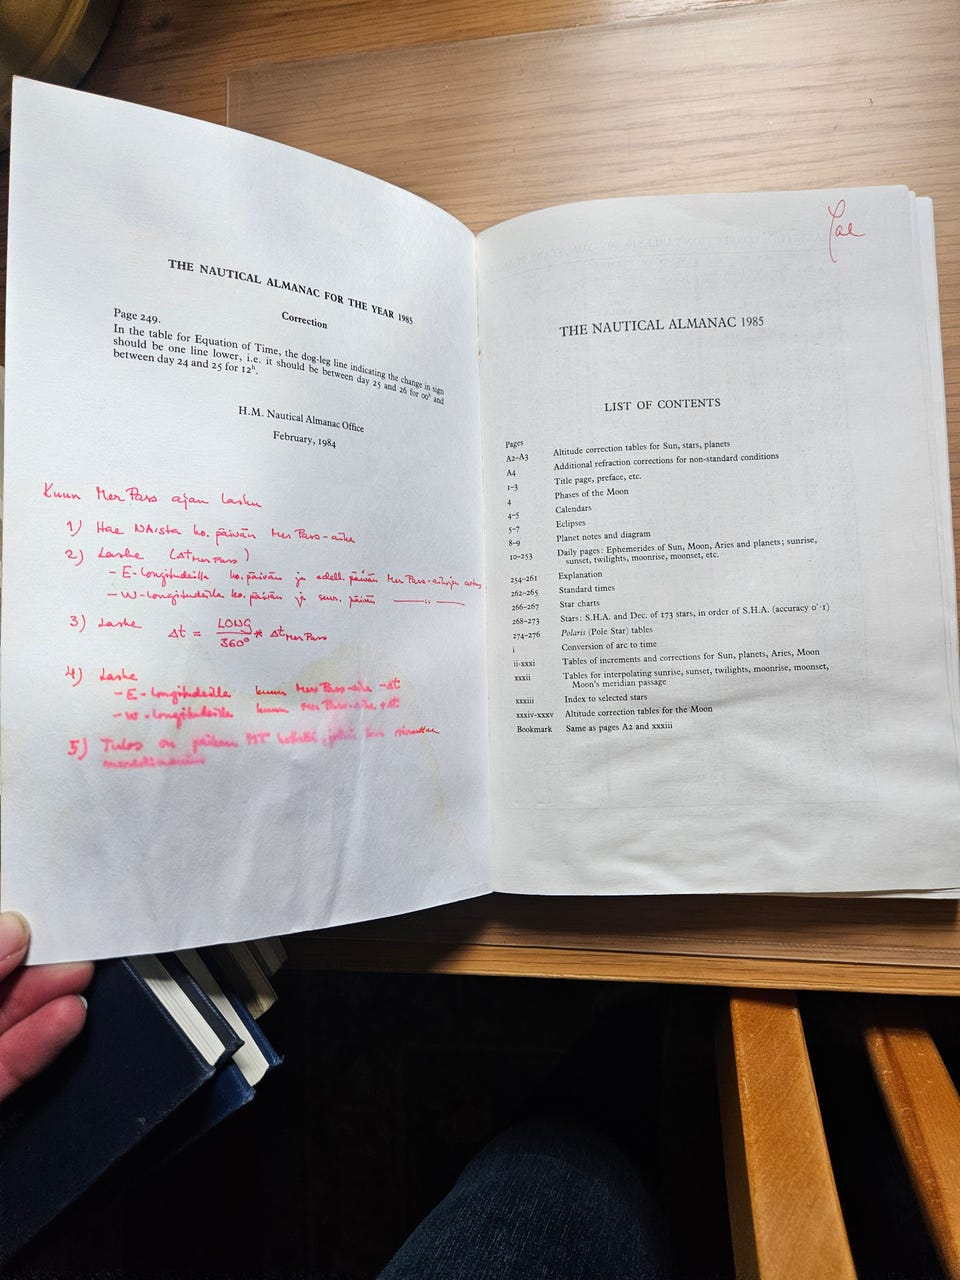 THE NAUTICAL ALMANAC FOR THE YEAR 1985
Correction
Page 249.
In the table for Equation of Time, the dog-leg line indicating the change in sign
should be one line lower, i.e. it should be between day 25 and 26 for 00ʰ and
between day 24 and 25 for 12ʰ.
H.M. Nautical Almanac Office
February, 1984
Kuun Mer Pass ajan lasku
1) Hae NA:sta ko. päivän Mer Pass-aika
2) Laske (Δt Mer Pass)
- E-longitudeilla ko. päivän ja edell. päivän Mer Pass-aikojen
- W-longitudeilla ko. päivän ja seur. päivän —— " ——
3) Laske Δt = LONG / 360° * Δt Mer Pass
4) Laske
- E-longitudeilla kuun Mer Pass-aika -Δt
- W-longitudeilla kuun Mer Pass-aika +Δt
5) Tulos on paikan MT hetkellä, jolloin kuu
THE NAUTICAL ALMANAC 1985
LIST OF CONTENTS
Pages
A2-A3 Altitude correction tables for Sun, stars, planets
A4 Additional refraction corrections for non-standard conditions
1-3 Title page, preface, etc.
4 Phases of the Moon
4-5 Calendars
5-7 Eclipses
8-9 Planet notes and diagram
10-253 Daily pages: Ephemerides of Sun, Moon, Aries and planets; sunrise,
sunset, twilights, moonrise, moonset, etc.
254-261 Explanation
262-265 Standard times
266-267 Star charts
268-273 Stars: S.H.A. and Dec. of 173 stars, in order of S.H.A. (accuracy 0′·1)
274-276 Polaris (Pole Star) tables
i Conversion of arc to time
ii-xxxi Tables of increments and corrections for Sun, planets, Aries, Moon
xxxii Tables for interpolating sunrise, sunset, twilights, moonrise, moonset,
Moon's meridian passage
xxxiii Index to selected stars
xxxiv-xxxv Altitude correction tables for the Moon
Bookmark Same as pages A2 and xxxiii